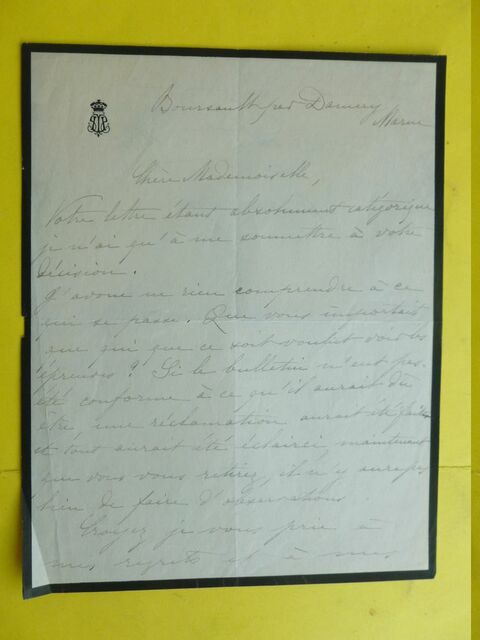 Boursault par Damery
Marne
Chère Mademoiselle,
Votre lettre étant absolument catégorique
je n'ai qu'à me soumettre à votre
décision.
J'avoue ne rien comprendre à ce
qui se passe. Que vous importait
que qui que ce soit voulut voir les
épreuves? Si le bulletin n'eut pas
été conforme à ce qu'il aurait du
être une réclamation aurait été faite
et tout aurait été éclairci maintenant
que vous vous retirez, il n'y aura pas
lieu de faire d'observations.
Croyez je vous prie à
mes regrets et à mes